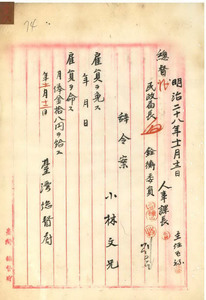 74
明治二十八年十一月十一日
人事課長
主任
總督
民政局長
銓衡委員
辞令案
小林文兄
雇員ヲ免ス
年 月 日
雇員ヲ命ス
月俸金拾八円ヲ給ス
年十一月十二日
臺湾総督府